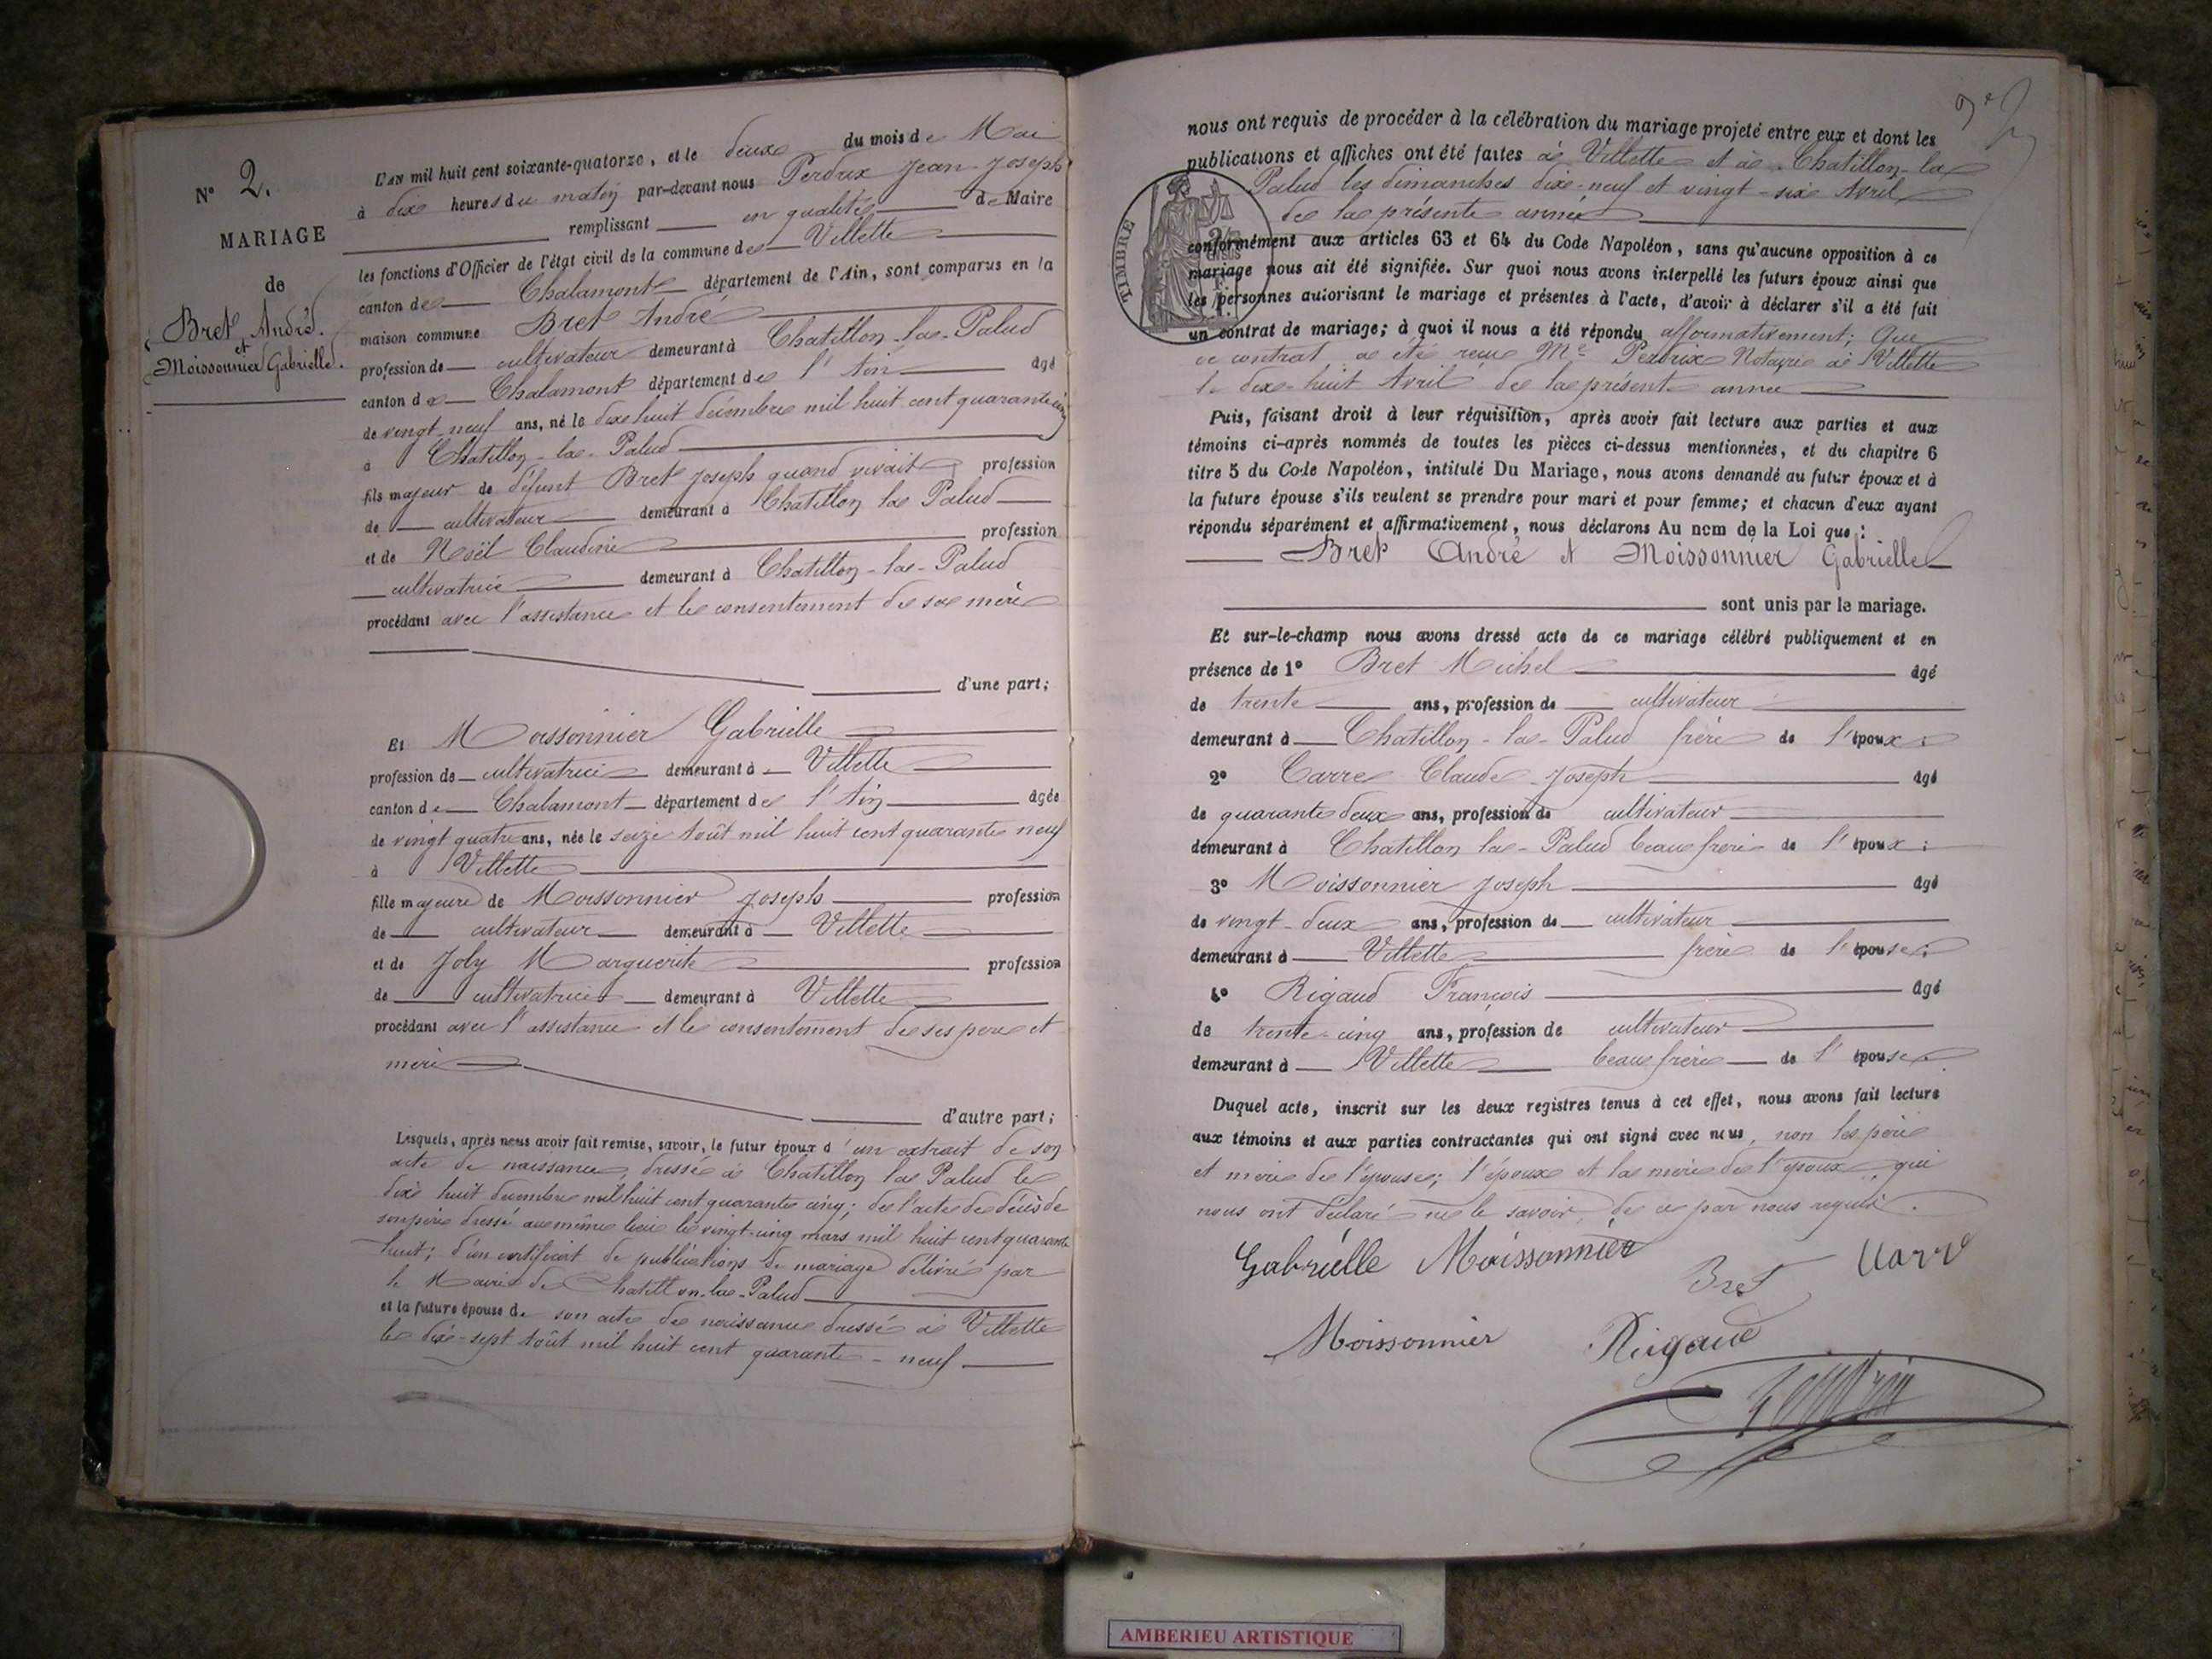 N° 2.
MARIAGE
de
Bret André.
et
Moissonnier Gabrielle.
L'an mil huit cent soixante-quatorze, et le deux du mois de Mai
à dix heures du matin par-devant nous Perdrix Jean-Joseph
remplissant en qualité de Maire
les fonctions d'Officier de l'état civil de la commune de Villette
canton de Chalamont département de l'Ain, sont comparus en la
maison commune Bret André
profession de cultivateur demeurant à Chatillon-la-Palud
canton de Chalamont département de l'Ain âgé
de vingt-neuf ans, né le dix huit décembre mil huit cent quarante cinq
à Chatillon-la-Palud
fils majeur de défunt Bret Joseph quand vivait profession
de cultivateur demeurant à Chatillon la Palud
et de Noël Claudine profession
cultivatrice demeurant à Chatillon-la-Palud
procédant avec l'assistance et le consentement de sa mère
d'une part;
Et Moissonnier Gabrielle
profession de cultivatrice demeurant à Villette
canton de Chalamont département de l'Ain âgée
de vingt quatre ans, née le seize Août mil huit cent quarante neuf
à Villette
fille majeure de Moissonnier Joseph profession
de cultivateur demeurant à Villette
et de Joly Marguerite profession
de cultivatrice demeurant à Villette
procédant avec l'assistance et le consentement de ses père et
mère
d'autre part;
Lesquels, après nous avoir fait remise, savoir, le futur époux d'un extrait de son
acte de naissance, dressé à Chatillon la Palud le
dix huit décembre mil huit cent quarante cinq; de l'acte de décès de
son père dressé au même lieu le vingt-cinq mars mil huit cent quarante
huit; d'un certificat de publications de mariage délivré par
le Maire de Chatillon-la-Palud
et la future épouse de son acte de naissance dressé à Villette
le dix-sept Août mil huit cent quarante-neuf
nous ont requis de procéder à la célébration du mariage projeté entre eux et dont les
publications et affiches ont été faites à Villette et à Chatillon-la
Palud les dimanches dix-neuf et vingt-six Avril
de la présente année
TIMBRE
conformément aux articles 63 et 64 du Code Napoléon, sans qu'aucune opposition à ce
mariage nous ait été signifiée. Sur quoi nous avons interpellé les futurs époux ainsi que
les personnes autorisant le mariage et présentes à l'acte, d'avoir à déclarer s'il a été fait
un contrat de mariage; à quoi il nous a été répondu affirmativement; Que
ce contrat a été reçu Me Perdrix Notaire à Villette
le dix-huit Avril de la présente année
Puis, faisant droit à leur réquisition, après avoir fait lecture aux parties et aux
témoins ci-après nommés de toutes les pièces ci-dessus mentionnées, et du chapitre 6
titre 5 du Code Napoléon, intitulé Du Mariage, nous avons demandé au futur époux et à
la future épouse s'ils veulent se prendre pour mari et pour femme; et chacun d'eux ayant
répondu séparément et affirmativement, nous déclarons Au nom de la Loi que:
Bret André et Moissonnier Gabrielle
sont unis par le mariage.
Et sur-le-champ nous avons dressé acte de ce mariage célébré publiquement et en
présence de 1° Bret Michel âgé
de trente ans, profession de cultivateur
demeurant à Chatillon-la-Palud frère de l'époux;
2° Carre Claude Joseph âgé
de quarante deux ans, profession de cultivateur
demeurant à Chatillon la-Palud beau frère de l'époux;
3° Moissonnier Joseph âgé
de vingt-deux ans, profession de cultivateur
demeurant à Villette frère de l'épouse;
4° Rigaud François âgé
de trente-cinq ans, profession de cultivateur
demeurant à Villette beau frère de l'épouse
Duquel acte, inscrit sur les deux registres tenus à cet effet, nous avons fait lecture
aux témoins et aux parties contractantes qui ont signé avec nous, non les père
et mère de l'épouse; l'époux et la mère de l'époux, qui
nous ont déclaré ne le savoir, de ce par nous requis.
Gabrielle Moissonnier Bret Carre
Moissonnier Rigaud
Perdrix
AMBERIEU ARTISTIQUE